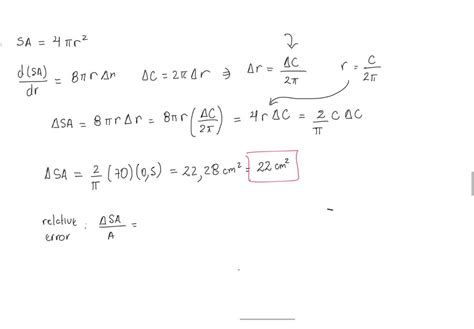 SA = 4πr²
d(SA)/dr = 8πrΔr   ΔC = 2πΔr ⇒ Δr = ΔC/2π   r = C/2π
ΔSA = 8πrΔr = 8πr(ΔC/2π) = 4rΔC = 2/π C ΔC
ΔSA = 2/π (70)(0,5) = 22,28 cm² = 22 cm²
relative error : ΔSA/A =